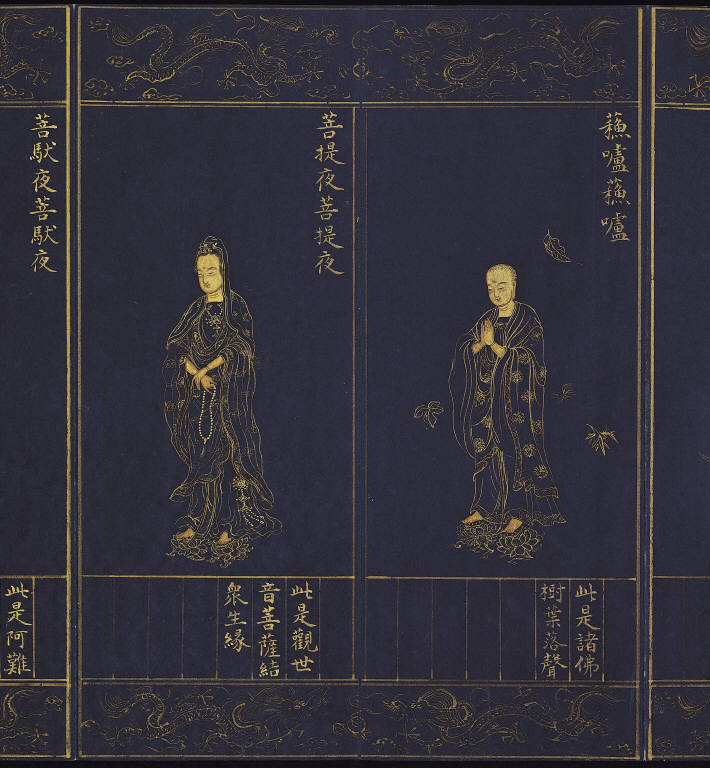 蘓嚧蘓嚧
此是諸佛
樹葉落聲
菩提夜菩提夜
此是觀世
音菩薩結
衆生縁
菩馱夜菩馱夜
此是阿難